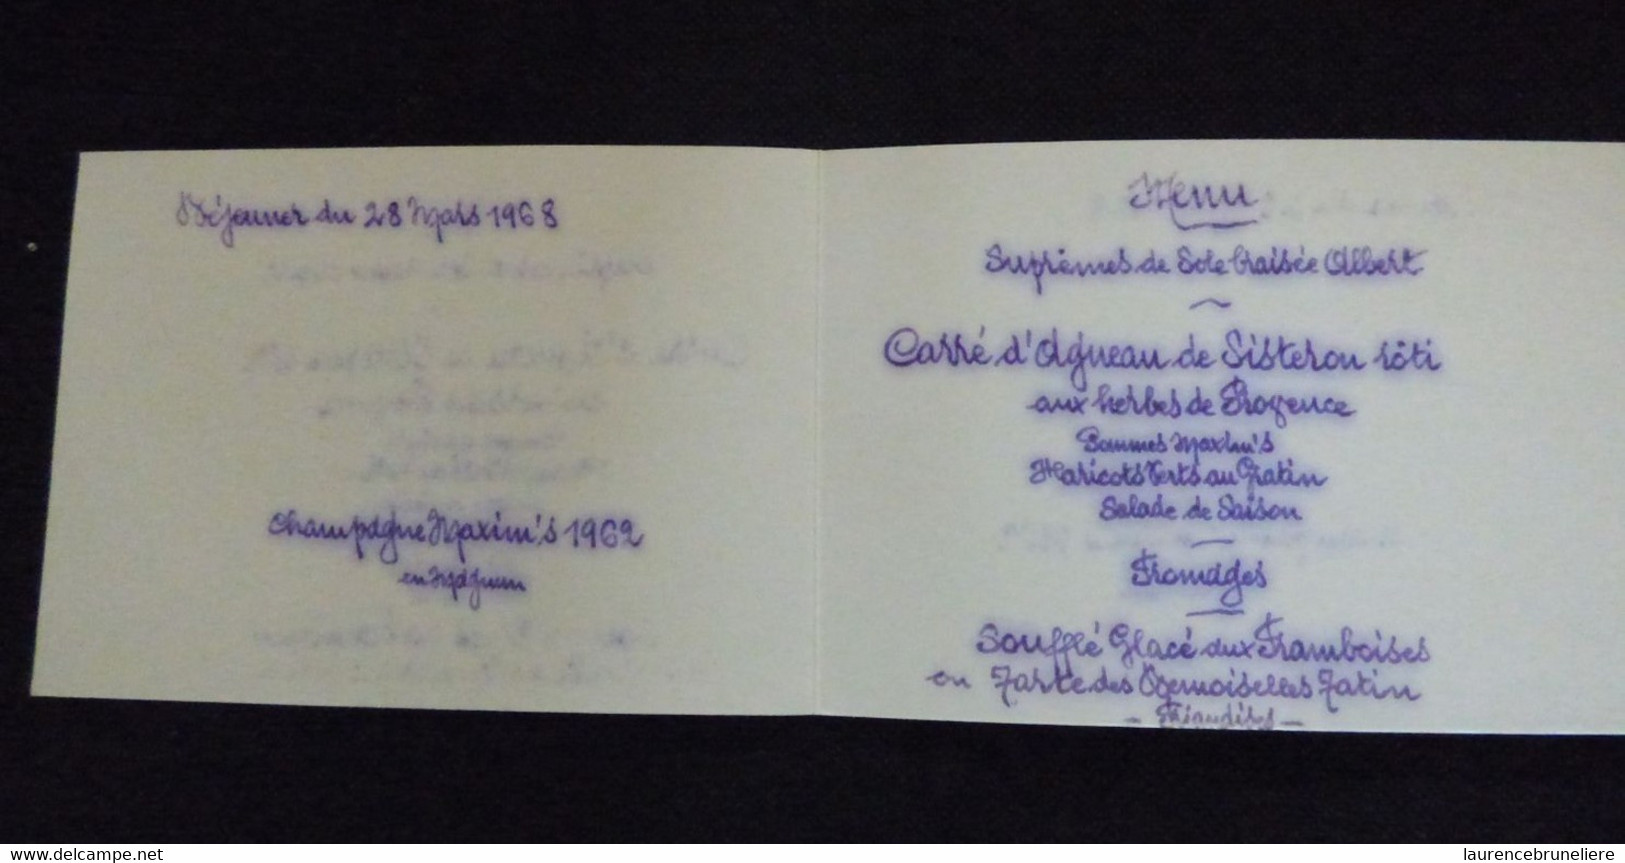 Déjeuner du 28 Mars 1968
Champagne Maxim's 1962
en Magnum
Menu
Suprêmes de Sole braisée Albert
Carré d'Agneau de Sisteron rôti
aux herbes de Provence
Pommes Maxim's
Haricots Verts au Gratin
Salade de Saison
Fromages
Soufflé Glacé aux Framboises
ou Tarte des Demoiselles Tatin
- Friandises -
www.delcampe.net
laurencebruneliere